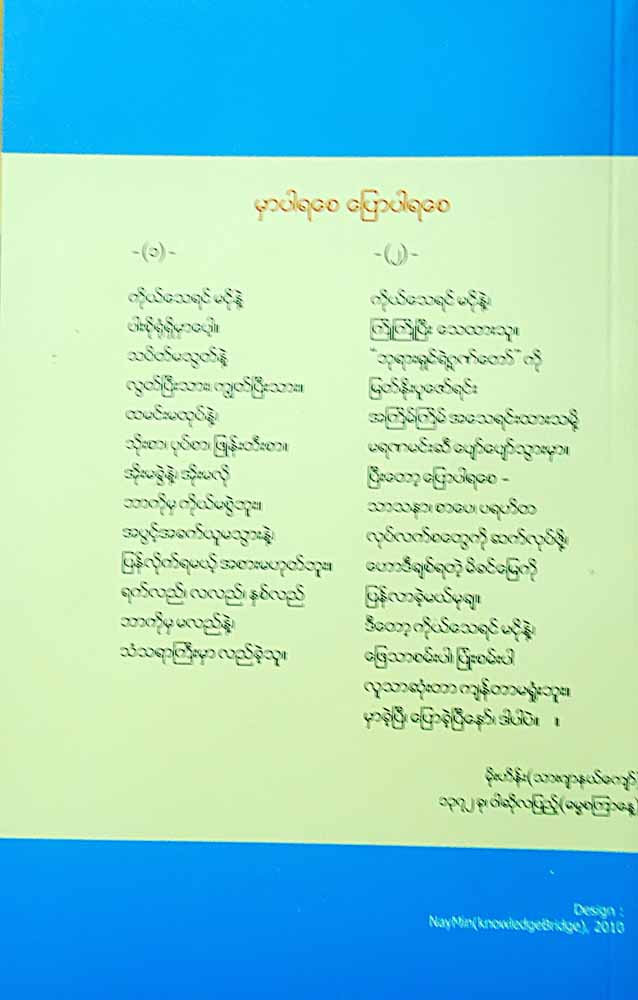 မှာပါရစေ ပြောပါရစေ
-(၁)-
ကိုယ်သေရင် မငိုနဲ့
ပါးစိုရုံရှိမှာပေါ့။
သပိတ်မသွတ်နဲ့
လွတ်ပြီးသား၊ ကျွတ်ပြီးသား။
ထမင်းမထုပ်နဲ့၊
သိုးစာ၊ ပုပ်စာ၊ ဖြုန်းတီးစာ။
အိုးမခွဲနဲ့၊ အိုးမလို
ဘာကိုမှ ကိုယ်မစွဲဘူး။
အပွင့်အခက်ယူမသွားနဲ့၊
ပြန်လိုက်ရမယ့် အစားမဟုတ်ဘူး။
ရက်လည်၊ လလည်၊ နှစ်လည်
ဘာကိုမှ မလည်နဲ့၊
သံသရာကြီးမှာ လည်ခဲ့သူ။
-(၂)-
ကိုယ်သေရင် မငိုနဲ့၊
ကြုံကြုံပြီး သေထားသူ။
"ဘုရားရှင်ရဲ့ဂုဏ်တော်" ကို
မြတ်နိုးပူဇော်ရင်း
အကြိမ်ကြိမ် အသေရင်းထားသမို့
မရဏမင်းဆီ ပျော်ပျော်သွားမှာ။
ပြီးတော့ ပြောပါရစေ -
သာသနာ၊ စာပေ၊ ပရဟိတ
လုပ်လက်စတွေကို ဆက်လုပ်ဖို့၊
ဟောဒီချစ်ရတဲ့ မိခင်မြေကို
ပြန်လာခဲ့မယ်မုချ။
ဒီတော့ ကိုယ်သေရင် မငိုနဲ့၊
ဖြေသာစမ်းပါ၊ ပြုံးစမ်းပါ
လူသာဆုံးတာ ကျန်တာမရှုံးဘူး။
မှာခဲ့ပြီ၊ ပြောခဲ့ပြီနော်၊ ဒါပါပဲ။ ။
မိုးဟိန်း(သားဂျာနယ်ကျော်)
၁၃၇၂ခု၊ ဝါဆိုလပြည့်(ဓမ္မစကြာနေ့)
Design :
NayMin(knowledgeBridge), 2010